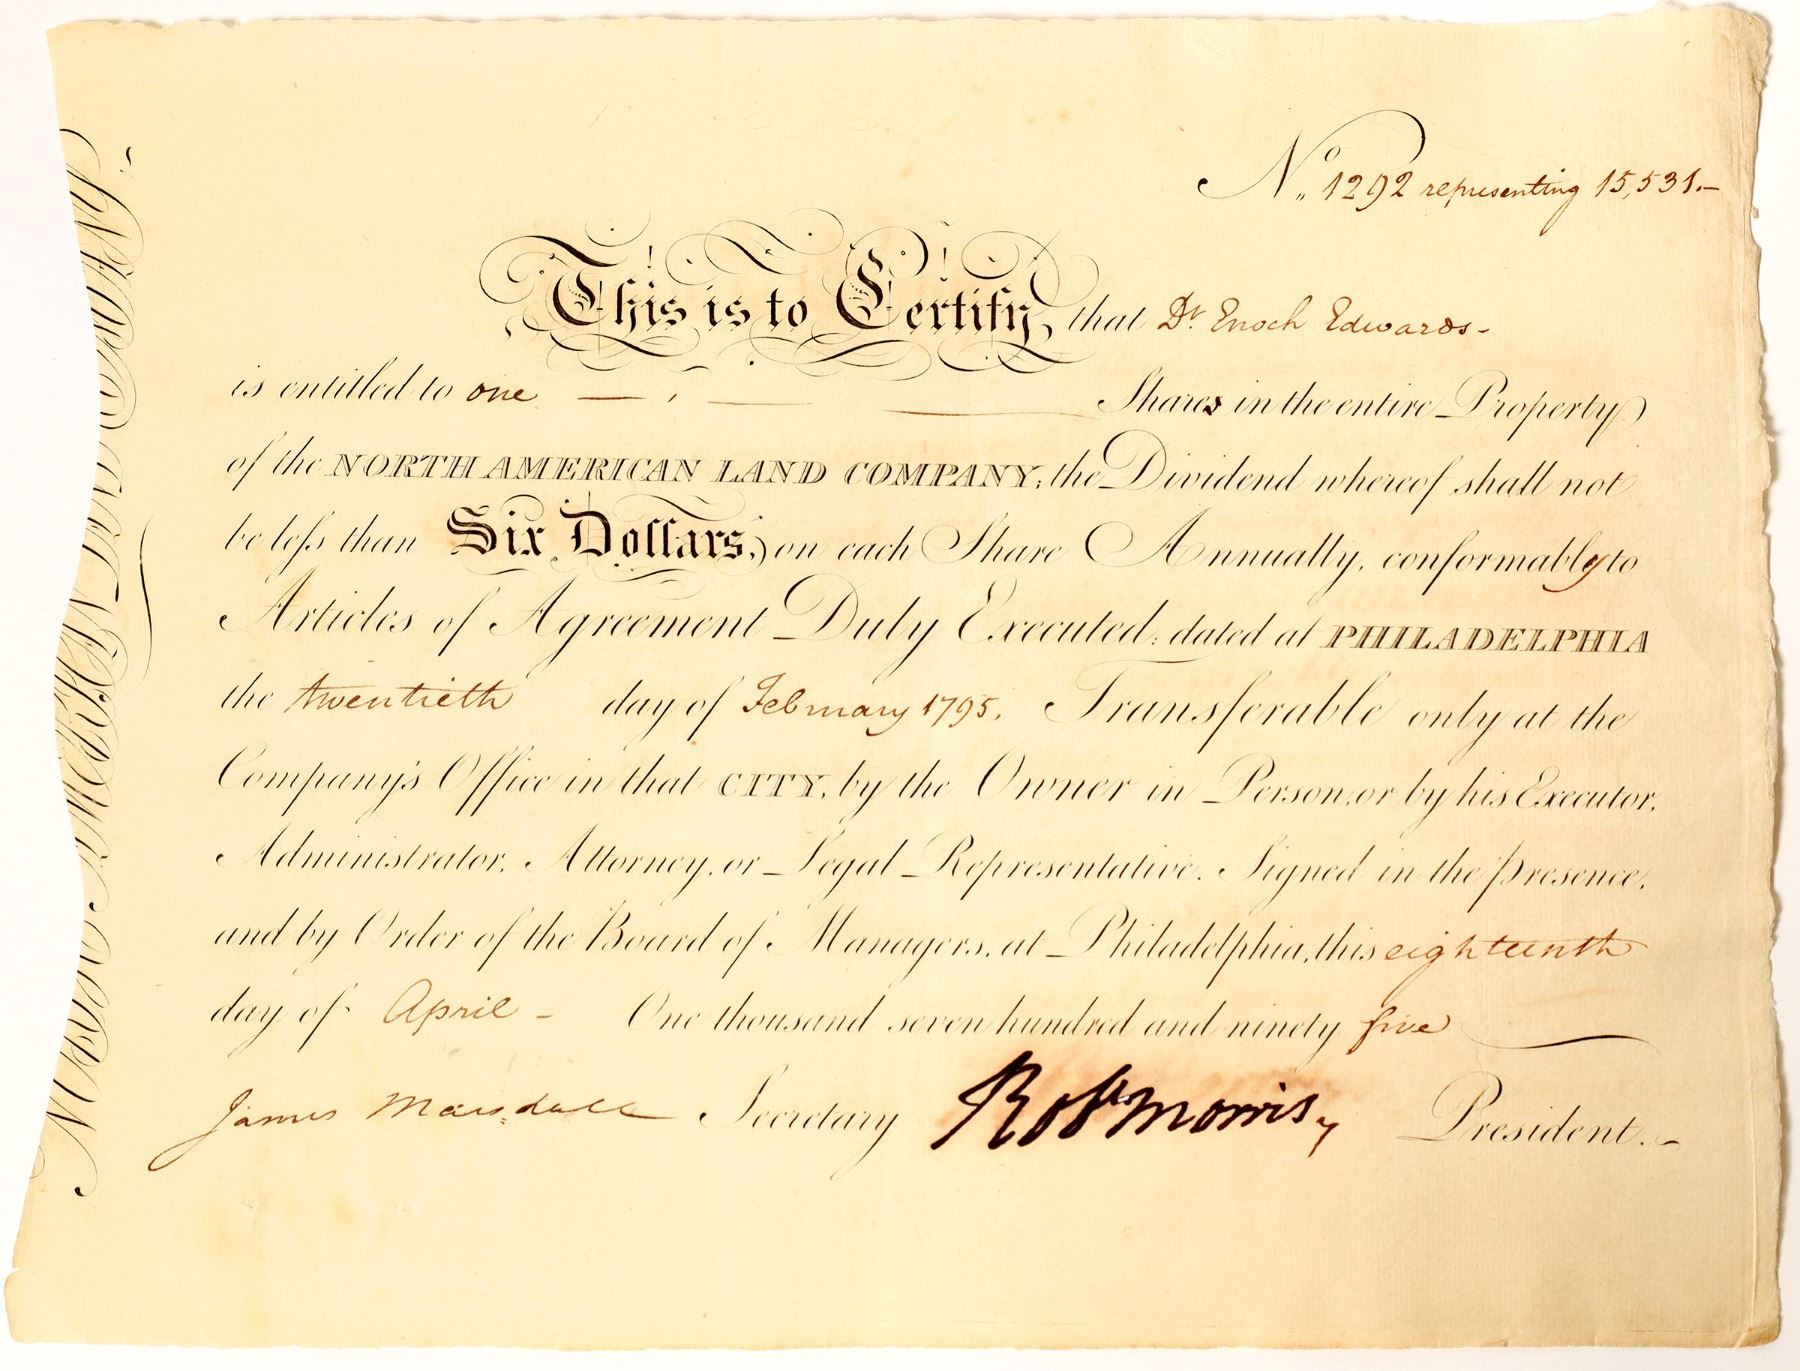 No. 1292 representing 15,531.—
This is to Certify, that Dr. Enoch Edwards -
is entitled to one — , — — Shares in the entire Property
of the NORTH AMERICAN LAND COMPANY; the Dividend whereof shall not
be less than Six Dollars, on each Share Annually, conformably to
Articles of Agreement Duly Executed: dated at PHILADELPHIA
the twentieth day of February 1795. Transferable only at the
Company's Office in that CITY, by the Owner in Person, or by his Executor,
Administrator, Attorney, or Legal Representative. Signed in the presence,
and by Order of the Board of Managers, at Philadelphia, this eighteenth
day of April - One thousand seven hundred and ninety five
James Marshall Secretary Robt Morris, President.